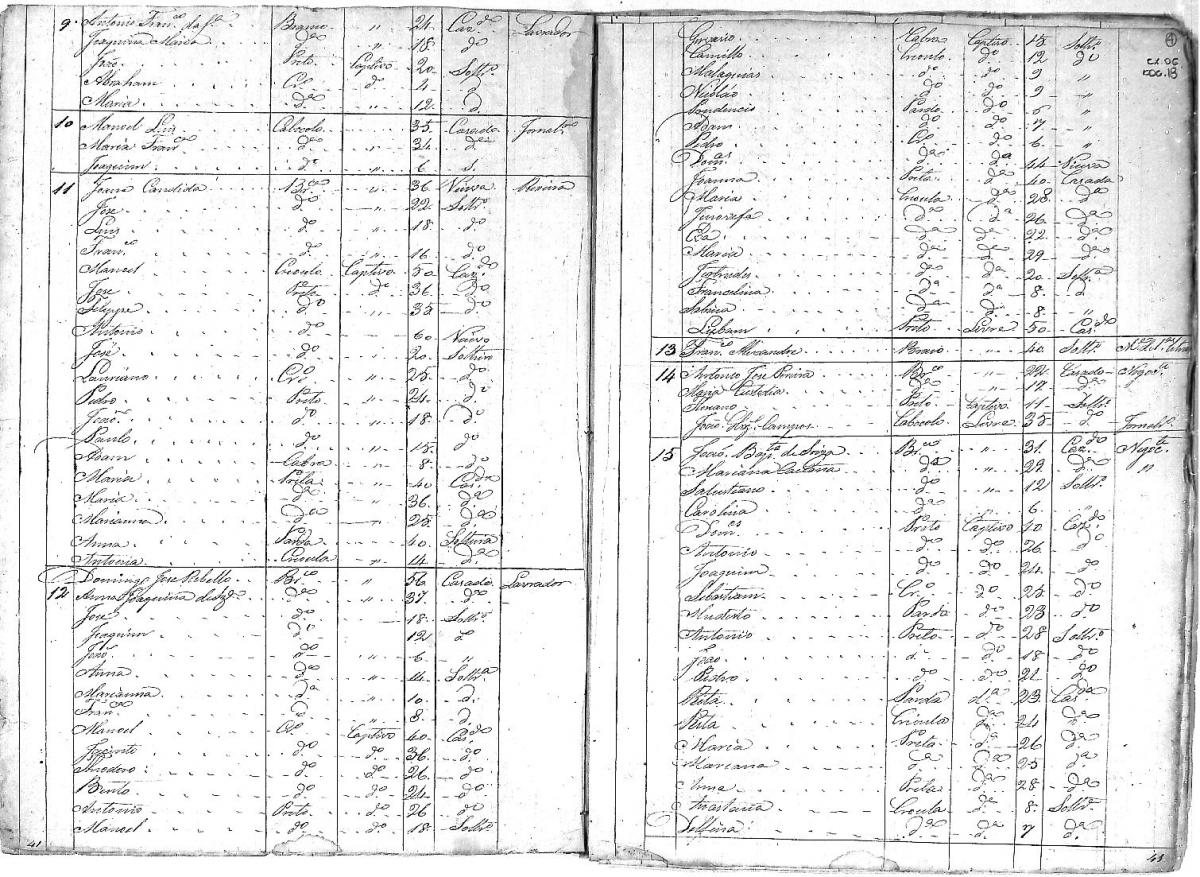 9 Antonio Fran.co da Sª Branco " 24 Caz.do Lavrador
Joaquina Maria D.ª " 18 d.º
João Preto Captivo 20 Soltr.º
Abraham Cr.º d.º 4 d.
Maria D.ª " 12 d.
10 Manoel Luis Cabocolo " 35 Casado Jornal.º
Maria Fran.ca D.ª " 34 d.ª
Joaquim d.º " 6 d.
11 Joana Candida Br.ca " 36 Viuva
José d.º " 22 Soltr.º
Luis d.º " 18 d.º
Fran.co d.º " 16 d.º
Manoel Creoulo Captivo 50 Caz.do
José Preto d.º 36 d.º
Felippe d.º " 35 d.º
Antonio d.º 60 Viuvo
José d.º " 20 Solteiro
Lauriano Cr.º " 25 d.º
Pedro Preto " 24 d.º
João d.º " 18 d.º
Paulo d.º " 15 d.º
Adam Cabra " 8 d.º
Maria Preta " 40 Cas.da
Maria D.ª 36 d.ª
Marianna D.ª 25 d.ª
Anna Parda " 40 Solteira
Antonia Creoula " 14 d.ª
12 Domingos José Rebello Br.co " 56 Casado Lavrador
Anna Joaquina D.ª " 37 d.ª
José d.º " 18 Soltr.º
Joaquim d.º 12 d.º
João d.º " 6 "
Anna D.ª " 14 Soltr.ª
Marianna D.ª " 10 d.
Fran.co d. " 8 d.
Manoel Cr.º Captivo 40 Cas.do
Jacinto d.º d.º 36 d.º
Theodoro d.º d.º 26 d.º
Bento d.º d.º 24 d.º
Antonio Preto d.º 26 d.º
Manoel d.º d.º 18 Soltr.º
41
4
cx.06
doc.18
Cabra Captivo 15 Soltr.º
Camillo Crioulo d.º 12 d.º
Malaquias d.º d.º 9 "
Nicolao d.º d.º 9 "
Pardo d.º 6 "
Adam d.º d.º 7 "
Pedro Cr.º d.º 6 "
Dom.as D.ª D.ª 44 Viuva
Joanna Preta d.ª 40 Casada
Maria Crioula D.ª 28 d.ª
D.ª D.ª 26 D.ª
D.ª D.ª 22 D.ª
Maria D.ª d.ª 29 d.ª
Gertrudes D.ª d.ª 20 Soltr.ª
Francelina D.ª d.ª 8 d.
Sabina D.ª d.ª 8 "
Preto Livre 50 Cas.do
13 Fran.co Alexandre " 40 Soltr.º
14 Antonio José Pereira Br.co " 22 Casado Negoc.te
Maria Custodia D.ª " 17 d.ª
Preto Captivo 11 Soltr.º
João Campos Cabocolo Livre 35 d.º Jornal.º
15 João Bap.ta de Souza Br.co " 31 Caz.do Negoc.te
Mariana D.ª " 29 d.ª "
Salustiano d.º " 12 Soltr.º
Carolina d.ª 6 "
Dom.os Preto Captivo 40 Caz.do
Antonio d.º d.º 26 d.º
Joaquim d.º d.º 24 d.º
Sebastiam Cr.º d.º 25 d.º
Modesto Pardo d.º 23 d.º
Antonio Preto d.º 28 Soltr.º "
João d.º d.º 18 d.º
Pedro d.º d.º 21 d.º
Rita Parda d.ª 23 Cas.da
Rita Crioula d.ª 24 d.ª
Maria Preta d.ª 26 d.ª
Mariana d.ª d.ª 25 d.ª
Anna Preta d.ª 28 d.ª
Anastacia Crioula d.ª 8 Soltr.ª
Delfina d.ª d.ª 7 d.ª